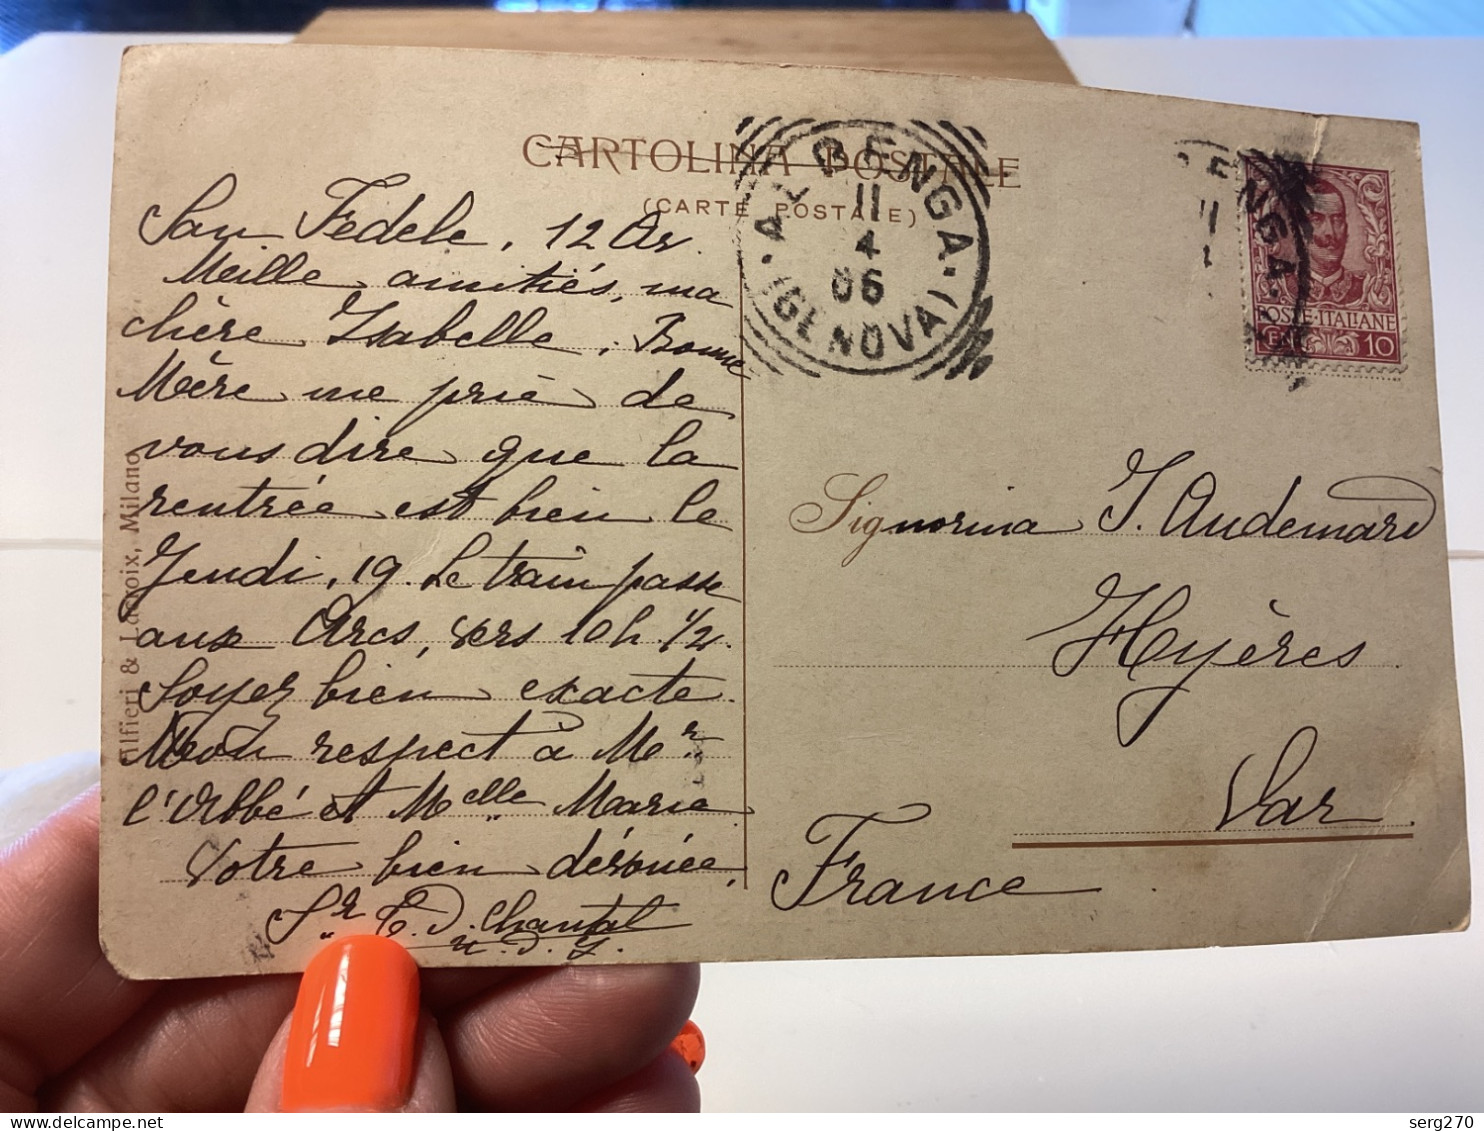 CARTOLINA POSTALE
(CARTE POSTALE)
ALBENGA
11
4
06
(GENOVA)
ENGA
11
POSTE·ITALIANE
CEN. 10
Alfieri & Lacroix, Milano
San Fedele, 12 Av.
Meille amitiés, ma
chère Isabelle. Bonne
Mère me prie de
vous dire que la
rentrée est bien le
Jeudi, 19. Le train passe
aux Arcs, vers 10h 1/2.
Soyez bien exacte
Mon respect à Mr
l'Abbé et Melle Marie
Votre bien dévouée,
Sr C. D. Chantal
n. D. J.
Signorina J. Audemard
Hyères
Var
France
serg270